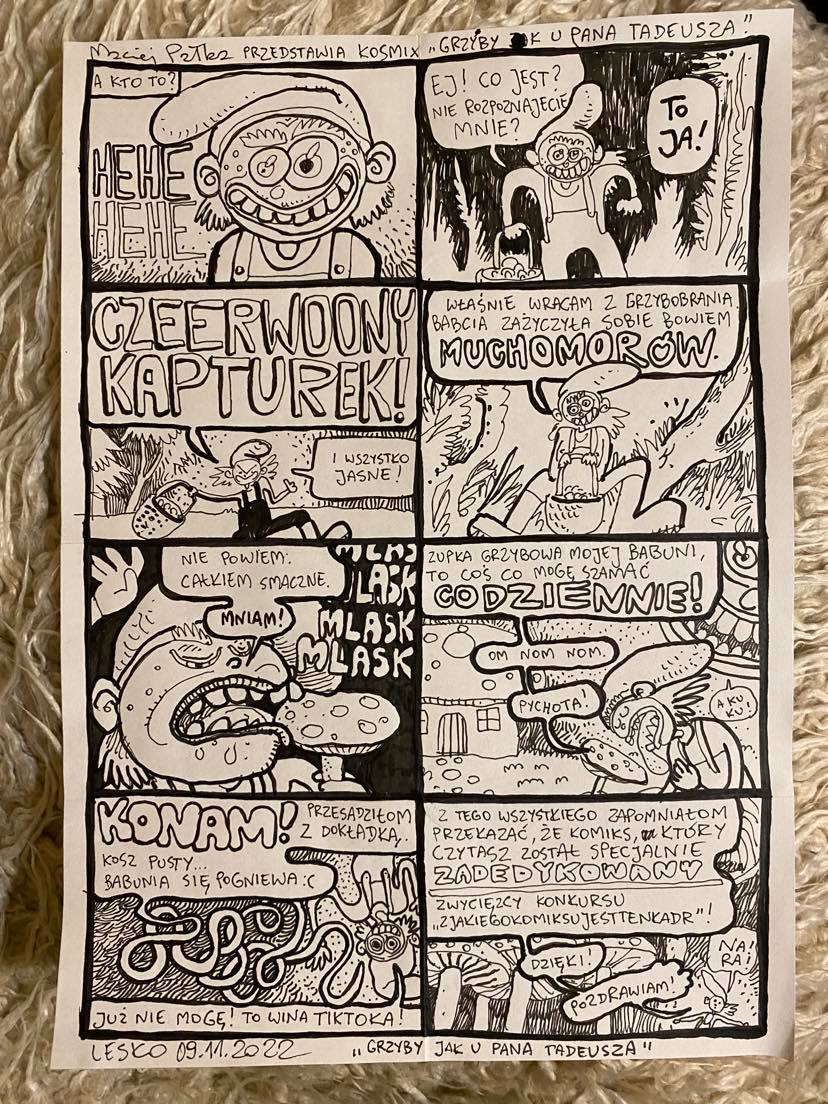 Maciej Pałka PRZEDSTAWIA KOSMIX „GRZYBY JAK U PANA TADEUSZA"
A KTO TO?
HEHE
HEHE
EJ! CO JEST?
NIE ROZPOZNAJECIE
MNIE?
TO
JA!
CZEERWOONY
KAPTUREK!
I WSZYSTKO
JASNE!
WŁAŚNIE WRACAM Z GRZYBOBRANIA.
BABCIA ZAŻYCZYŁA SOBIE BOWIEM
MUCHOMORÓW.
NIE POWIEM.
CAŁKIEM SMACZNE.
MNIAM!
MLASK
MLASK
MLASK
MLASK
ZUPKA GRZYBOWA MOJEJ BABUNI,
TO COŚ CO MOGĘ SZAMAĆ
CODZIENNIE!
OM NOM NOM.
PYCHOTA!
A KU
KU!
KONAM! PRZESADZIŁOM
Z DOKŁADKĄ..
KOSZ PUSTY...
BABUNIA SIĘ POGNIEWA :C
JUŻ NIE MOGĘ! TO WINA TIKTOKA!
Z TEGO WSZYSTKIEGO ZAPOMNIAŁOM
PRZEKAZAĆ, ŻE KOMIKS, KTÓRY
CZYTASZ ZOSTAŁ SPECJALNIE
ZADEDYKOWANY
ZWYCIĘZCY KONKURSU
„ZJAKIEGOKOMIKSUJESTTENKADR"!
DZIĘKI!
POZDRAWIAM!
NA!
RA!
LESKO 09.11.2022 „GRZYBY JAK U PANA TADEUSZA"